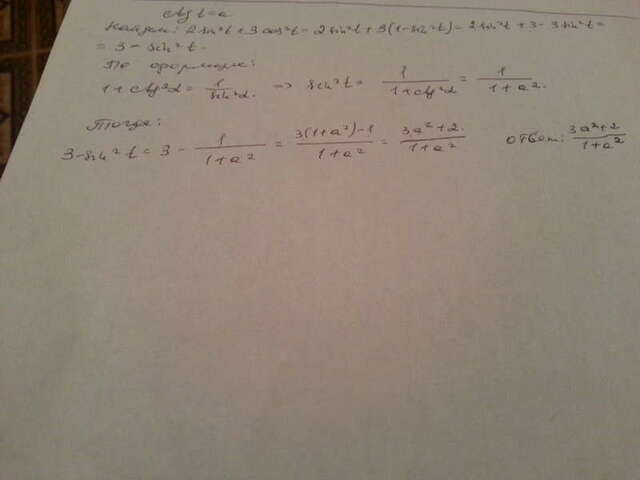 ctg t = a
Найти: 2 sin²t + 3 cos²t = 2 sin²t + 3(1 - sin²t) = 2 sin²t + 3 - 3 sin²t =
= 3 - sin²t.
По формуле:
1 + ctg²α = 1/sin²α. => sin²t = 1/(1 + ctg²α) = 1/(1 + a²).
Тогда:
3 - sin²t = 3 - 1/(1 + a²) = (3(1 + a²) - 1)/(1 + a²) = (3a² + 2)/(1 + a²) ответ: (3a² + 2)/(1 + a²)